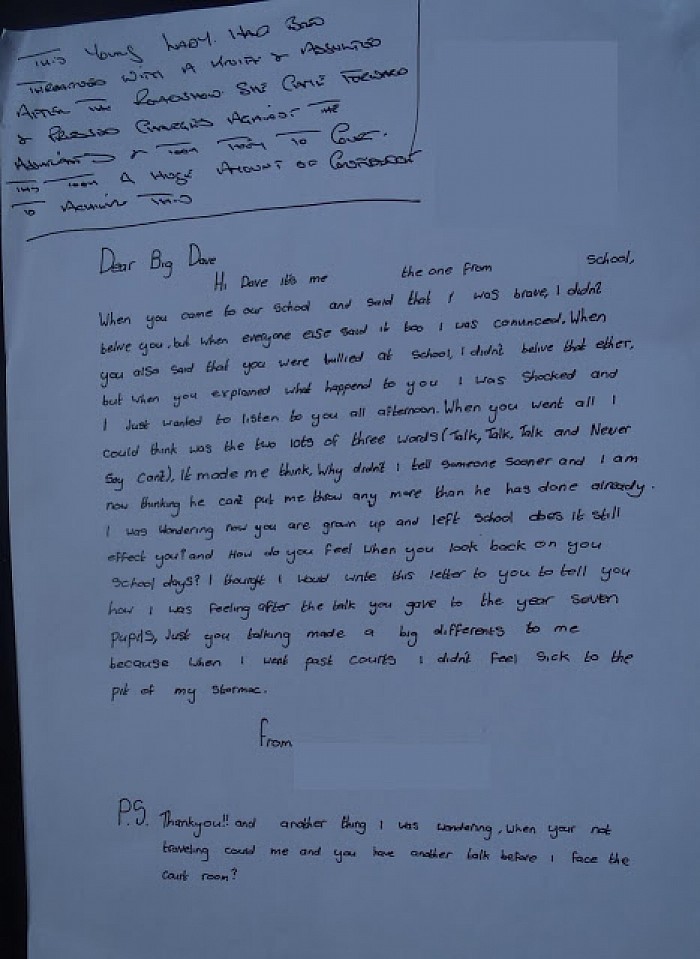 THIS YOUNG LADY. HAD BEEN
THREATENED WITH A KNIFE & ASSAULTED
AFTER THE ROADSHOW SHE CAME FORWARD
& PRESSED CHARGES AGAINST THE
ASSAILANTS & TOOK THEM TO COURT.
THIS TOOK A HUGE AMOUNT OF CONFIDENCE
TO ACHIEVE THIS
Dear Big Dave
Hi Dave it's me the one from school,
When you came to our school and said that I was brave, I didn't
belive you, but when everyone else said it too I was convinced. When
you also said that you were bullied at school, I didn't belive that ether,
but when you explained what happend to you I was shocked and
I Just wanted to listen to you all afternoon. When you went all I
could think was the two lots of three words (Talk, Talk, Talk and Never
Say Can't), It made me think, Why didn't I tell someone sooner and I am
now thinking he cant put me throw any more than he has done already.
I was wondering now you are grown up and left school does it still
effect you? and How do you feel when you look back on you
school days? I thought I would write this letter to you to tell you
how I was feeling after the talk you gave to the year seven
pupils, Just you talking made a big differents to me
because when I went past courts I didn't feel sick to the
pit of my stormac.
From
P.S. Thankyou!! and another thing I was wondering, when your not
traveling could me and you have another talk before I face the
court room?